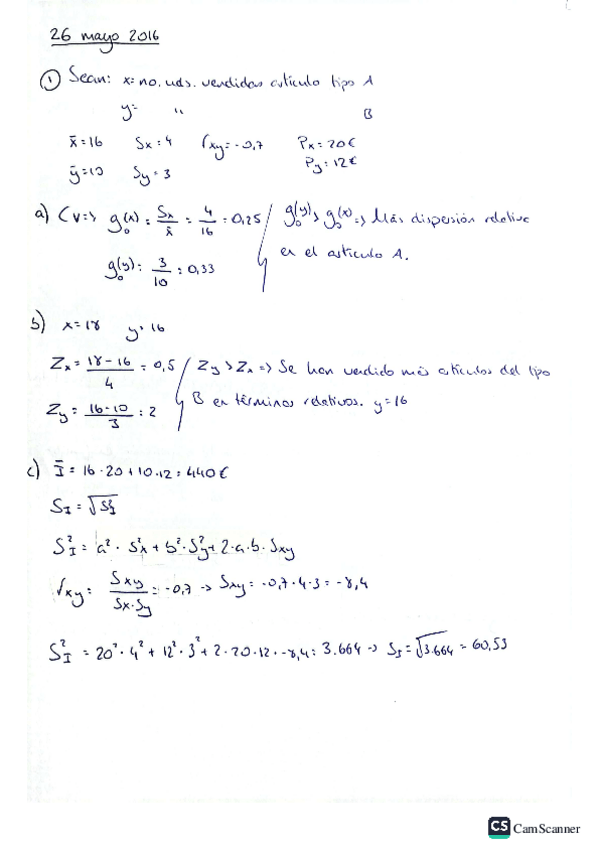 26 mayo 2016
① Sean: x= no. uds. vendidas artículo tipo A
y= " B
x̄=16 Sx=4 rxy=-0,7 Px=20€
ȳ=10 Sy=3 Py=12€
a) CV=> g₀(x) = Sx/x̄ = 4/16 = 0,25 / g₀(y) > g₀(x) => Más dispersión relativa
g₀(y) = 3/10 = 0,33 en el artículo A.
b) x=18 y=16
Zx = 18-16/4 = 0,5 / Zy > Zx => Se han vendido más artículos del tipo
Zy = 16-10/3 = 2 B en términos relativos. y=16
c) Ī = 16·20+10·12 = 440€
SI = √S²I
S²I = a²·S²x + b²·S²y + 2·a·b·Sxy
rxy = Sxy/Sx·Sy = -0,7 -> Sxy = -0,7·4·3 = -8,4
S²I = 20²·4² + 12²·3² + 2·20·12·-8,4 = 3.664 -> SI = √3.664 = 60,53
CS CamScanner